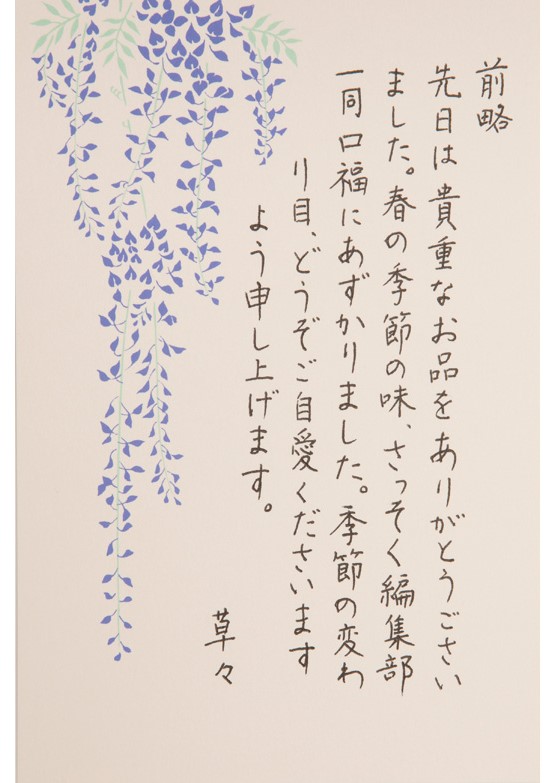 前略
先日は貴重なお品をありがとうござい
ました。春の季節の味、さっそく編集部
一同口福にあずかりました。季節の変わ
り目、どうぞご自愛くださいます
よう申し上げます。
草々